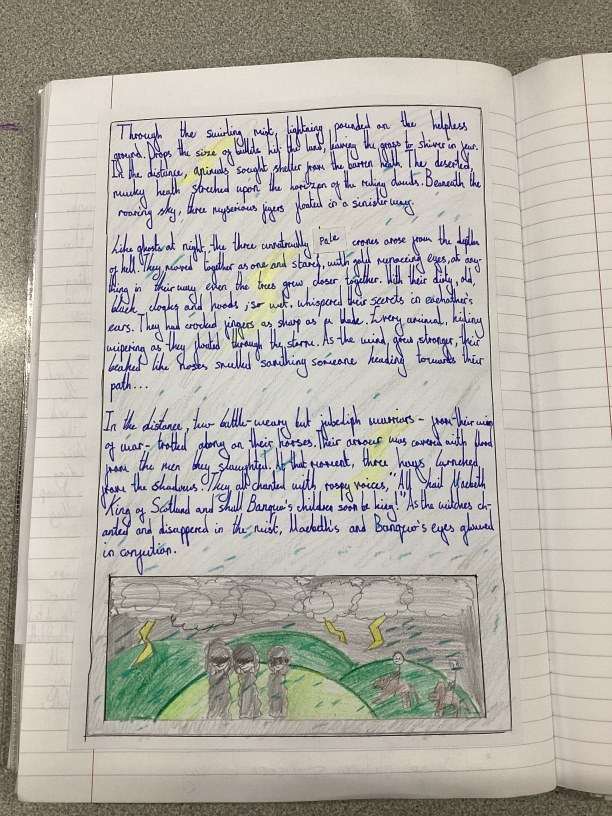 Through the swirling mist, lightning pounded on the helpless
ground. Drops the size of bullets hit the land, leaving the grass to shiver in fear.
In the distance, animals sought shelter from the barren heath. The deserted,
murky heath streched upon the horizon of the ruling clouds. Beneath the
roaring sky, three myserious figers floated in a sinister way.
Like ghosts at night, the three unnaturally pale crones arose from the depths
of hell. They moved together as one and stared, with gold menacing eyes, at any-
thing in their way even the trees grew closer together. With their dirty, old,
black cloaks and hoods, so wet. whispered their secrets in eachother's
ears. They had crooked fingers as sharp as a blade. Every animal, hiding
wipering as they floated through the storm. As the wind, grew stronger, their
beaked like noses smelled somthing someone heading towards their
path...
In the distance, two battle-weary but jubediph warriors - from their wins
of war - trotted along on their horses. Their armour was covered with blood
from the men they slaughted. At that moment, three hags lurneched
from the shadows. They all chanted with raspy voices, "All hail Macbeth
King of Scotland and shall Banquo's children soon be king!" As the witches ch-
anted and disappeared in the mist, Macbeth's and Banquo's eyes glewed
in conjution.